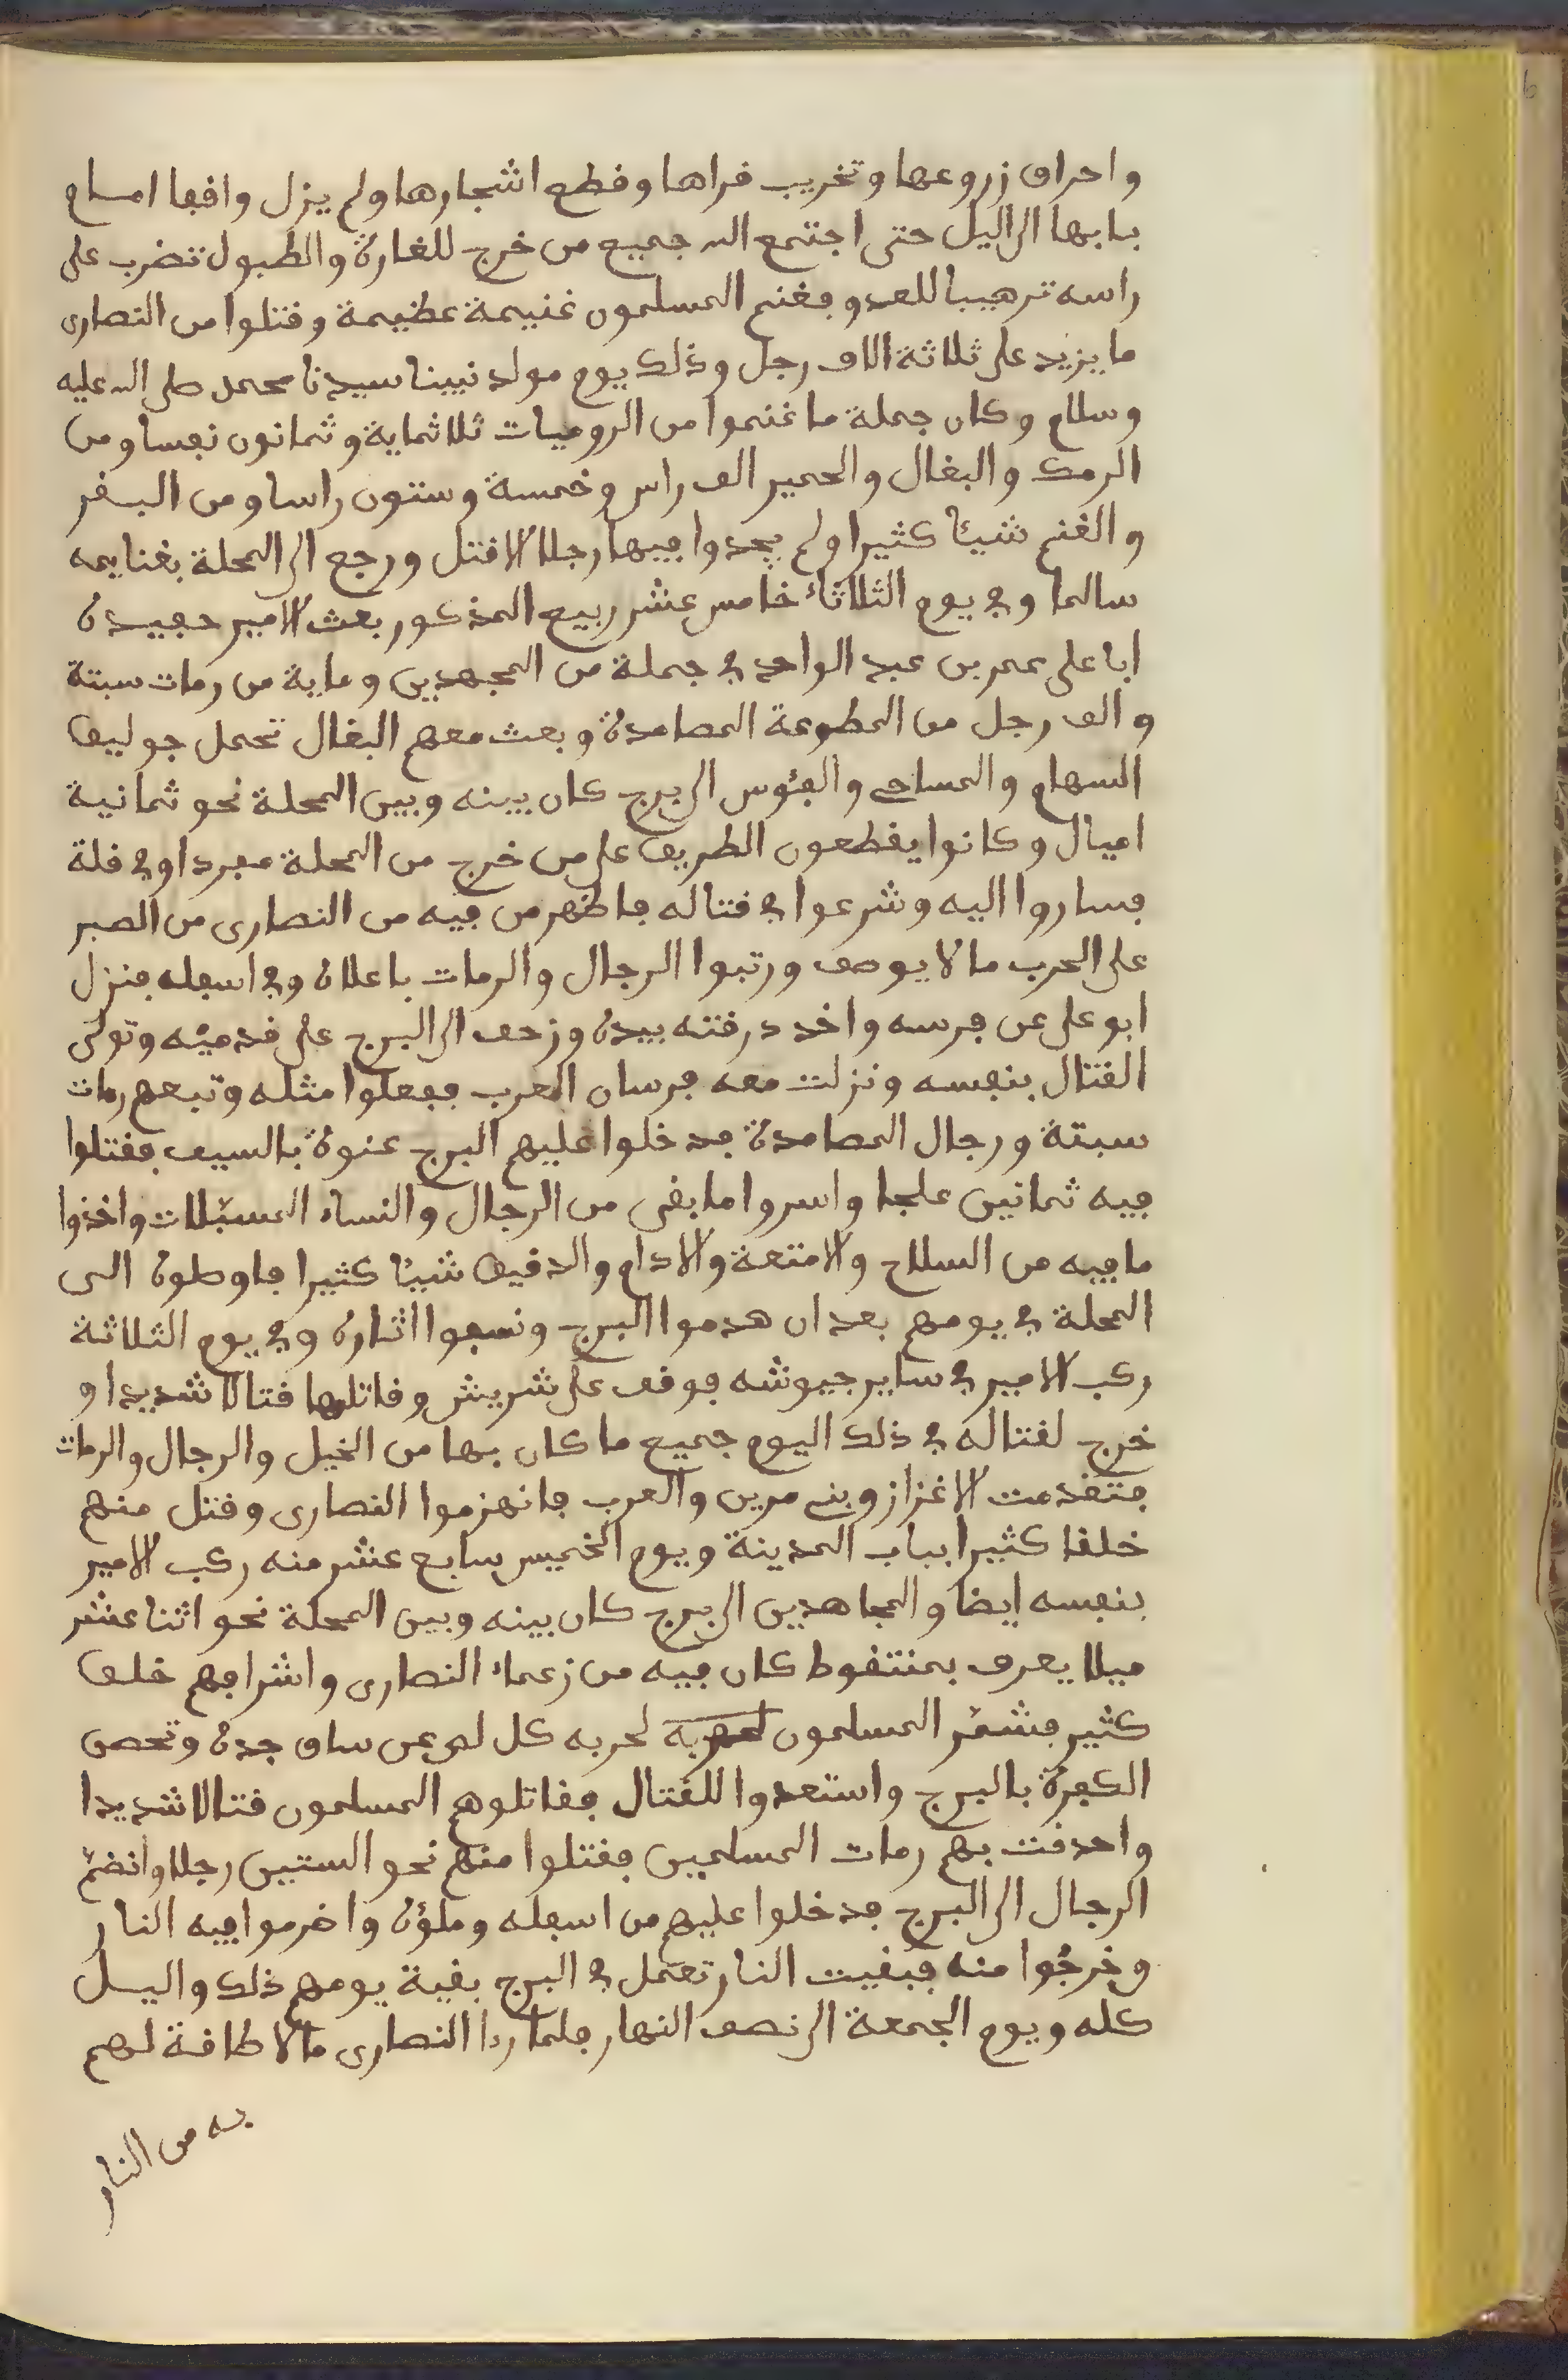 واحراق زروعها وتخريب قراها وقطع اشجارها ولم يزل واقفا امام
بابها الى اليل حتى اجتمع اليه جميع من خرج للغارة والطبول تضرب على
راسه ترهيبا للعدو فغنم المسلمون غنيمة عظيمة وقتلوا من النصارى
ما يزيد على ثلاثة الاف رجل وذلك يوم مولد نبينا سيدنا محمد صلى الله عليه
وسلام وكان جملة ما غنموا من الروميات ثلاثماية وثمانون نفسا ومن
الرمك والبغال والحمير الف راس وخمسة وستون راسا ومن البقر
والغنم شيئا كثيرا ولم يجدوا فيها رجلا الا قتل ورجع الى المحلة بغنايمه
سالما وفي يوم الثلاثاء خامس عشر ربيع المذكور بعث الامير حفيده
ابا على عمر بن عبد الواحد في جملة من المجهدين وماية من رمات سبتة
والف رجل من المطوعة المصامدة وبعث معهم البغال تحمل جوليق
السهام والمساحي والفئوس الى برج كان بينه وبين المحلة نحو ثمانية
اميال وكانوا يقطعون الطريق على من خرج من المحلة مفردا وفي قلة
فساروا اليه وشرعوا في قتاله فاظهر من فيه من النصارى من الصبر
على الحرب ما لا يوصف ورتبوا الرجال والرمات باعلاه وفي اسفله فنزل
ابو على عن فرسه واخد درقته بيده وزحف الى البرج على قدميه وتولى
القتال بنفسه ونزلت معه فرسان العرب ففعلوا مثله وتبعهم رمات
سبتة ورجال المصامدة فدخلوا عليهم البرج عنوة بالسيف فقتلوا
فيه ثمانين علجا واسروا ما بقى من الرجال والنساء المسبلات واخذوا
ما فيه من السلاح والامتعة والادام والدقيق شيئا كثيرا فاوصلوه الى
المحلة في يومهم بعد ان هدموا البرج ونسفوا اثاره وفي يوم الثلاثة
ركب الامير في ساير جيوشه فوقف على شريش وقاتلها قتالا شديدا و
خرج لقتاله في ذلك اليوم جميع ما كان بها من الخيل والرجال والرمات
فتقدمت الاغزاز وبني مرين والعرب فانهزموا النصارى وقتل منهم
خلقا كثيرا بباب المدينة ويوم الخميس سابع عشر منه ركب الامير
بنفسه ايضا والمجاهدين الى برج كان بينه وبين المحلة نحو اثنا عشر
ميلا يعرف بمنتقوط كان فيه من زعماء النصارى واشرافهم خلق
كثير فشمر المسلمون لحربه كل عن ساق جده وتحصن
الكفرة بالبرج واستعدوا للقتال فقاتلوهم المسلمون قتالا شديدا
واحدقت بهم رمات المسلمين فقتلوا منهم نحو الستين رجلا وانضم
الرجال الى البرج فدخلوا عليهم من اسفله وملؤه واضرموا فيه النار
وخرجوا منه فبقيت النار تعمل في البرج بقية يومهم ذلك واليل
كله ويوم الجمعة الى نصف النهار فلما را النصارى ما لا طاقة لهم
به من النار